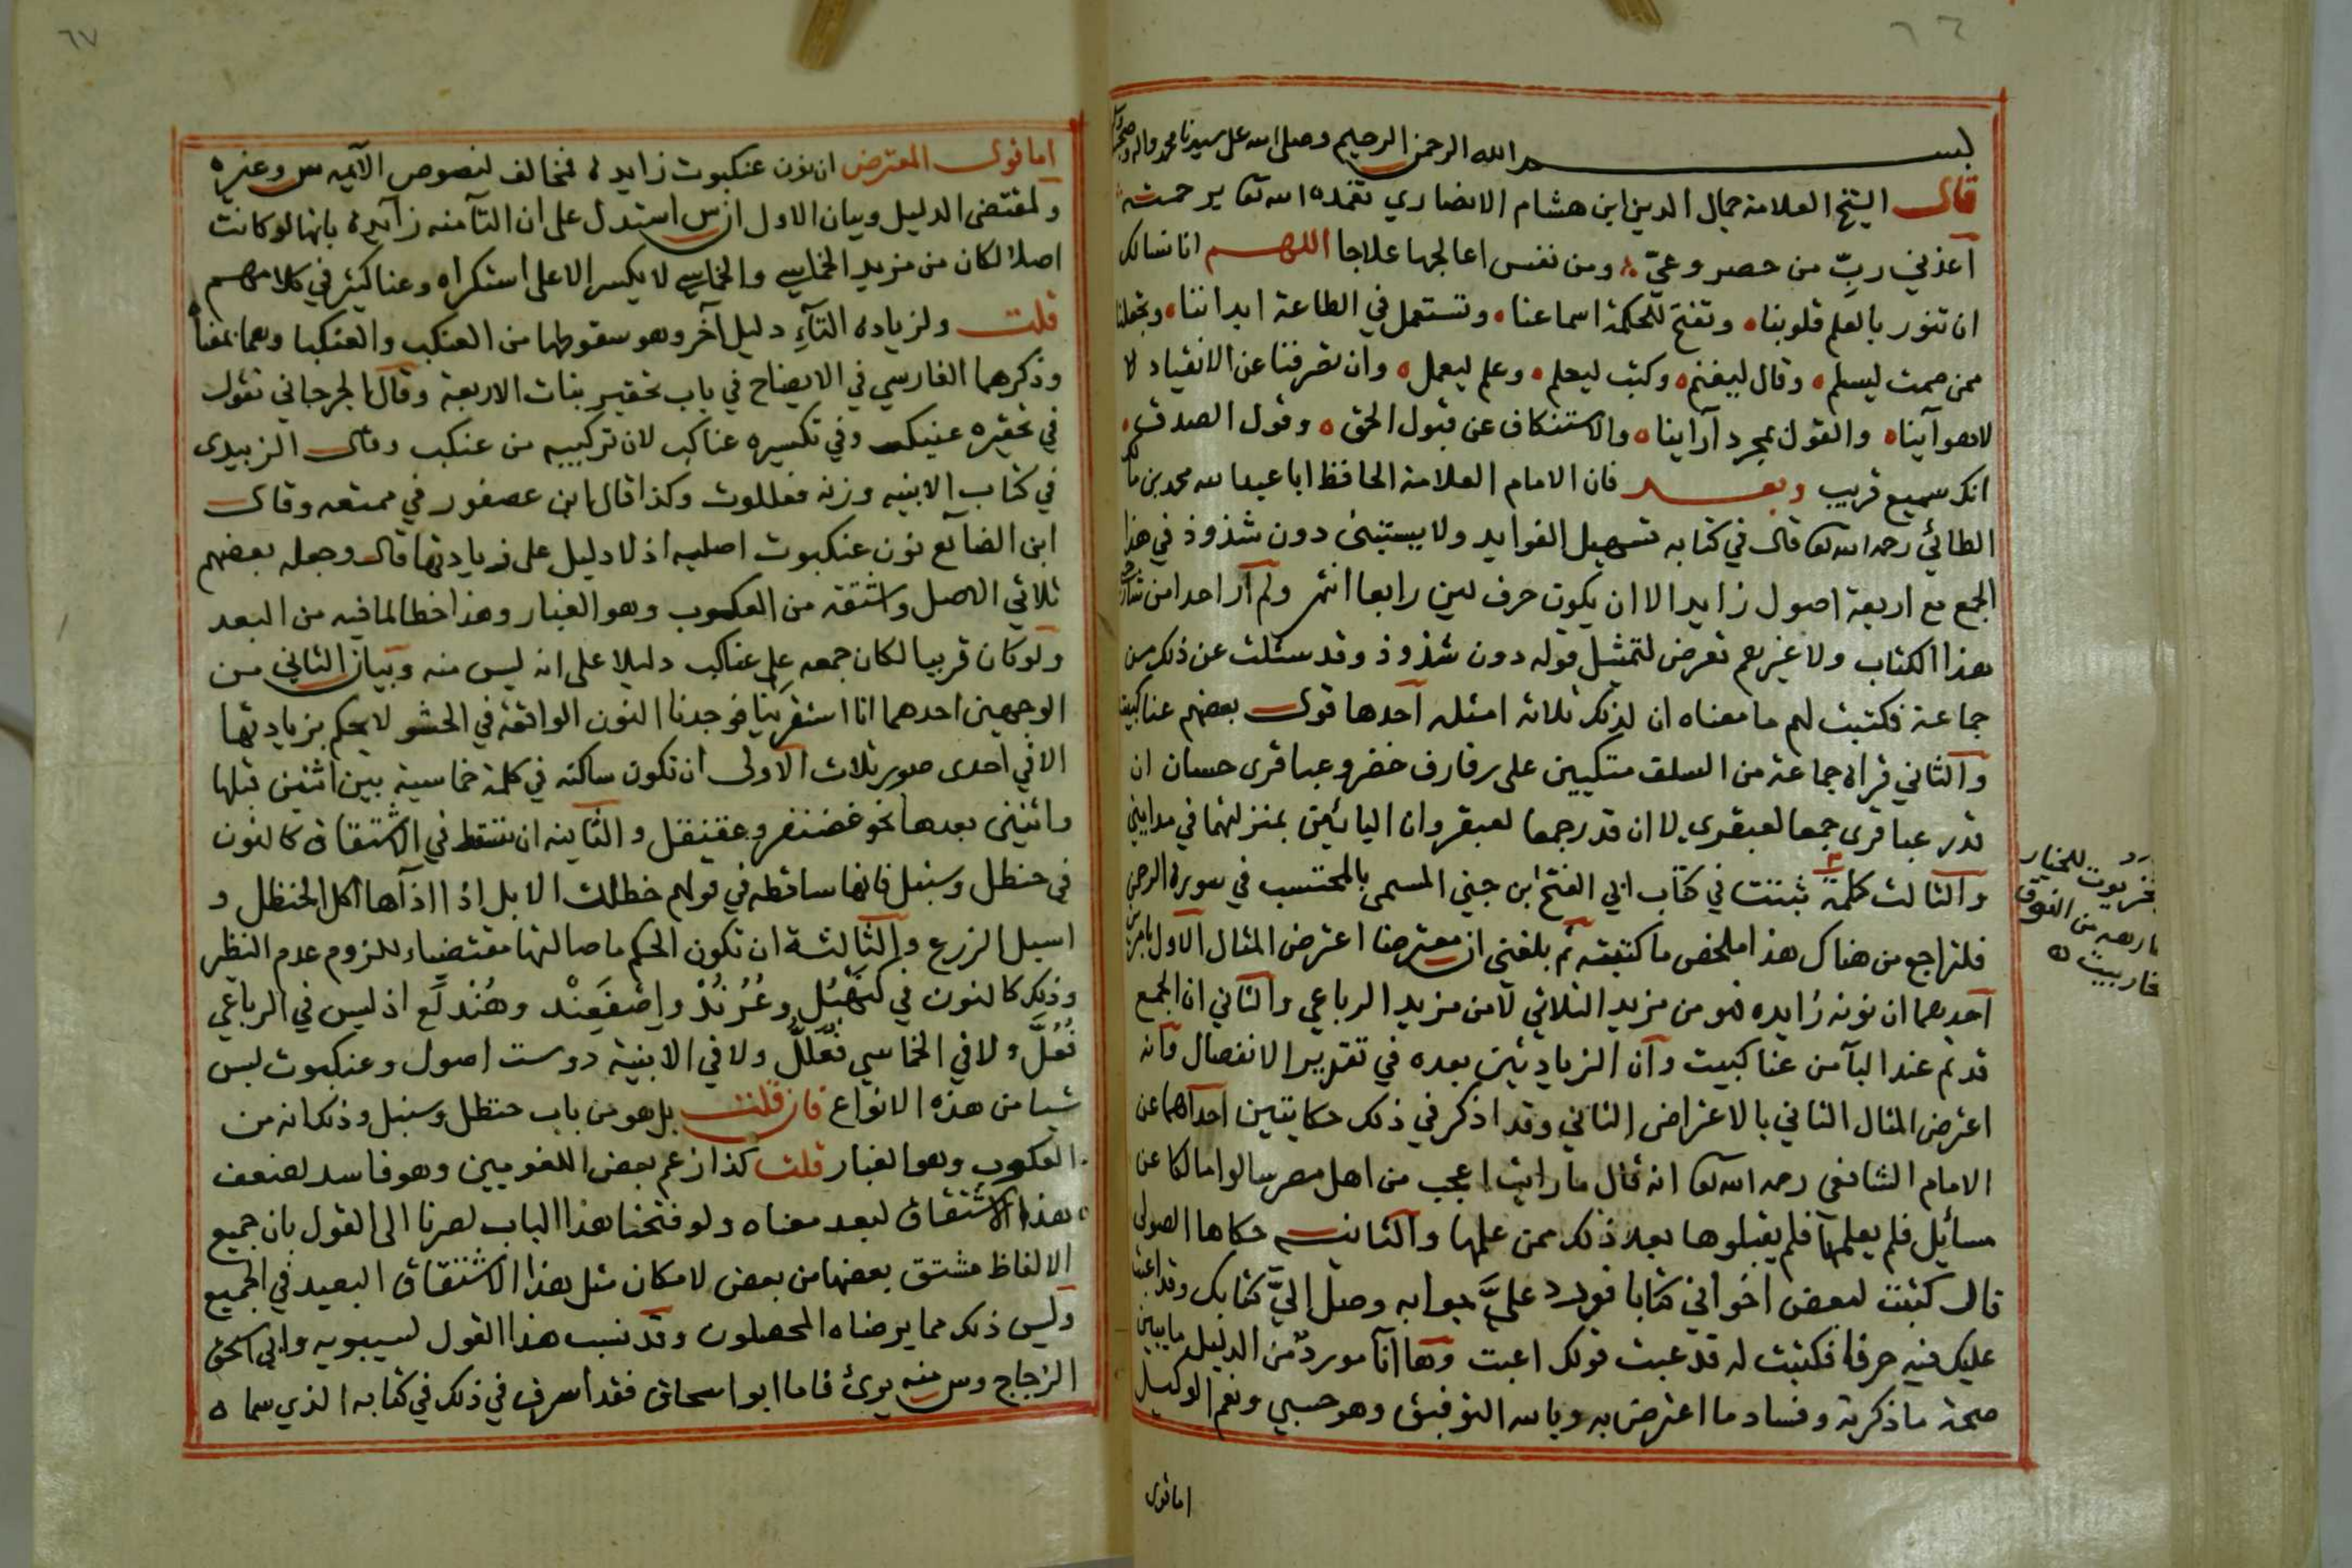 ٦٦
بسم الله الرحمن الرحيم وصلى الله على سيدنا محمد واله وصحبه
قال الشيخ العلامة جمال الدين ابن هشام الانصاري تغمده الله تعا برحمته
آعذني ربِّ من حصر وعيّ ومن نفس اعالجها علاجا اللهم انا نسالك
ان تنور بالعلم قلوبنا وتفتح للحكمة اسماعنا وتستعمل في الطاعة ابداننا وتجعلنا
ممن صمت ليسلم وقال ليغنم وكتب ليعلم وعلم ليعمل وان تصرفنا عن الانقياد لا
لاهوآينا والقول بمجرد آراينا والاستنكاف عن قبول الحق وقول الصدق
انك سميع قريب وبعد فان الامام العلامة الحافظ ابا عبد الله محمد بن مالك
الطائي رحمه الله تعا قال في كتابه تسهيل الفوايد ولا يستبنى دون شذوذ في هذا
الجمع مع اربعة اصول زايد الا ان يكون حرف لين رابعا انتهى ولم آر احدا من شارحي
هذا الكتاب ولا غيرهم تعرض لتمثيل قوله دون شذوذ وقد سئلت عن ذلك من
جماعة فكتبت لهم ما معناه ان لذلك ثلاثة امثله آحدها قول بعضهم عناكبيت
والثاني قراة جماعة من السلف متكيين على رفارف خضر وعباقرى حسان ان
قدر عباقرى جمعا لعبقري لا ان قدر جمعا لعبقر وان اليائين بمنزلتهما في مدايني
والثالث كلمة ثبتت في كتاب ابي الفتح ابن جني المسمى بالمحتسب في سورة الرحمن
فلتراجع من هناك هذا ملخص ما كتبته ثم بلغني ان معترضا اعترض المثال الاول بامرين
آحدهما ان نونه زايده فهو من مزيد الثلاثي لا من مزيد الرباعي والثاني ان الجمع
قد تم عند البآ من عناكبيت وآن الزيادتين بعده في تقدير الانفصال وآنه
اعترض المثال الثاني بالاعتراض الثاني وقد اذكر في ذلك حكايتين احداهما عن
الامام الشافعي رحمه الله تعا انه قال ما رايت اعجب من اهل مصر سالوا مالكا عن
مسائل فلم يعلمها فلم يقبلوها بعد ذلك ممن علمها والثانيه حكاها الصولى
قال كتبت لبعض اخواني كتابا فورد عليَّ جوابه وصل اليَّ كتابك وقد اعبت
عليك فيه حرفا فكتبت له قد عبت قولك اعبت وها انآ مورد من الدليل ما يبين
صحة ما ذكرته وفساد ما اعترض به وبالله التوفيق وهو حسبي ونعم الوكيل
اما قول
للخيار
من النوق
٦٧
اما قول المعترض ان نون عنكبوت زايدة فمخالف لنصوص الآئمه س وغيره
ولمقتضى الدليل وبيان الاول ان س استدل على ان التآ منه زآيدة بانها لو كانت
اصلا لكان من مزيد الخماسي والخماسي لا يكسر الا على استكراه وعناكيثر في كلامهم
قلت ولزيادة التآءِ دليل آخر وهو سقوطها من العنكب والعنكبا وهما بمعناه
وذكرهما الفارسي في الايضاح في باب تحقير بنات الاربعة وقال الجرجاني تقول
في تحقيره عنيكب وفي تكسيره عناكب لان تركيبه من عنكب وقال الزبيدى
في كتاب الابنيه وزنه فعللوت وكذا قال ابن عصفور في ممتعه وقال
ابن الضائع نون عنكبوت اصليه اذ لا دليل على زيادتها قال وجعله بعضهم
ثلاثي الاصل واشتقه من العكوب وهو الغبار وهذا خطا لما فيه من البعد
ولو كان قريبا لكان جمعه على عناكب دليلا على انه ليس منه وبيان الثاني من
الوجهين احدهما انا استقرينا فوجدنا النون الواقعة في الحشو لا يحكم بزيادتها
الا في احدى صور ثلاث الاولى ان تكون ساكنه في كلمة خماسية بين اثنين قبلها
واثنين بعدها نحو غضنفر وعقنقل والثانيه ان تسقط في الاشتقاق كالنون
في حنظل وسنبل فانها ساقطه في قولهم حظلت الابل اذا اذآها اكل الحنظل و
اسبل الزرع والثالثة ان تكون الحكم باصالتها مقتضياء للزوم عدم النظر
وذلك كالنون في كنَهْبُل وعُرُنْدْ واِصْفَعِنْد وهُنْدَلِع اذ ليس في الرباعي
فُعُلَّ ولا في الخماسي فَعَلّلُّ ولا في الابنية ذو ست اصول وعنكبوت ليس
شيا من هذه الانواع فان قلت بل هو من باب حنظل وسنبل وذلك انه من
العكوب وهو الغبار قلت كذا زعم بعض اللغويين وهو فاسد لضعف
هذا الاشتقاق لبعد معناه ولو فتحنا هذا الباب لصرنا الى القول بان جميع
الالفاظ مشتق بعضها من بعض لامكان مثل هذا الاشتقاق البعيد في الجميع
وليس ذلك مما يرضاه المحصلون وقد نسب هذا القول لسيبويه وابي اسحق
الزجاج وس منه برئ فاما ابو اسحاق فقد اسرف في ذلك في كتابه الذي سماه